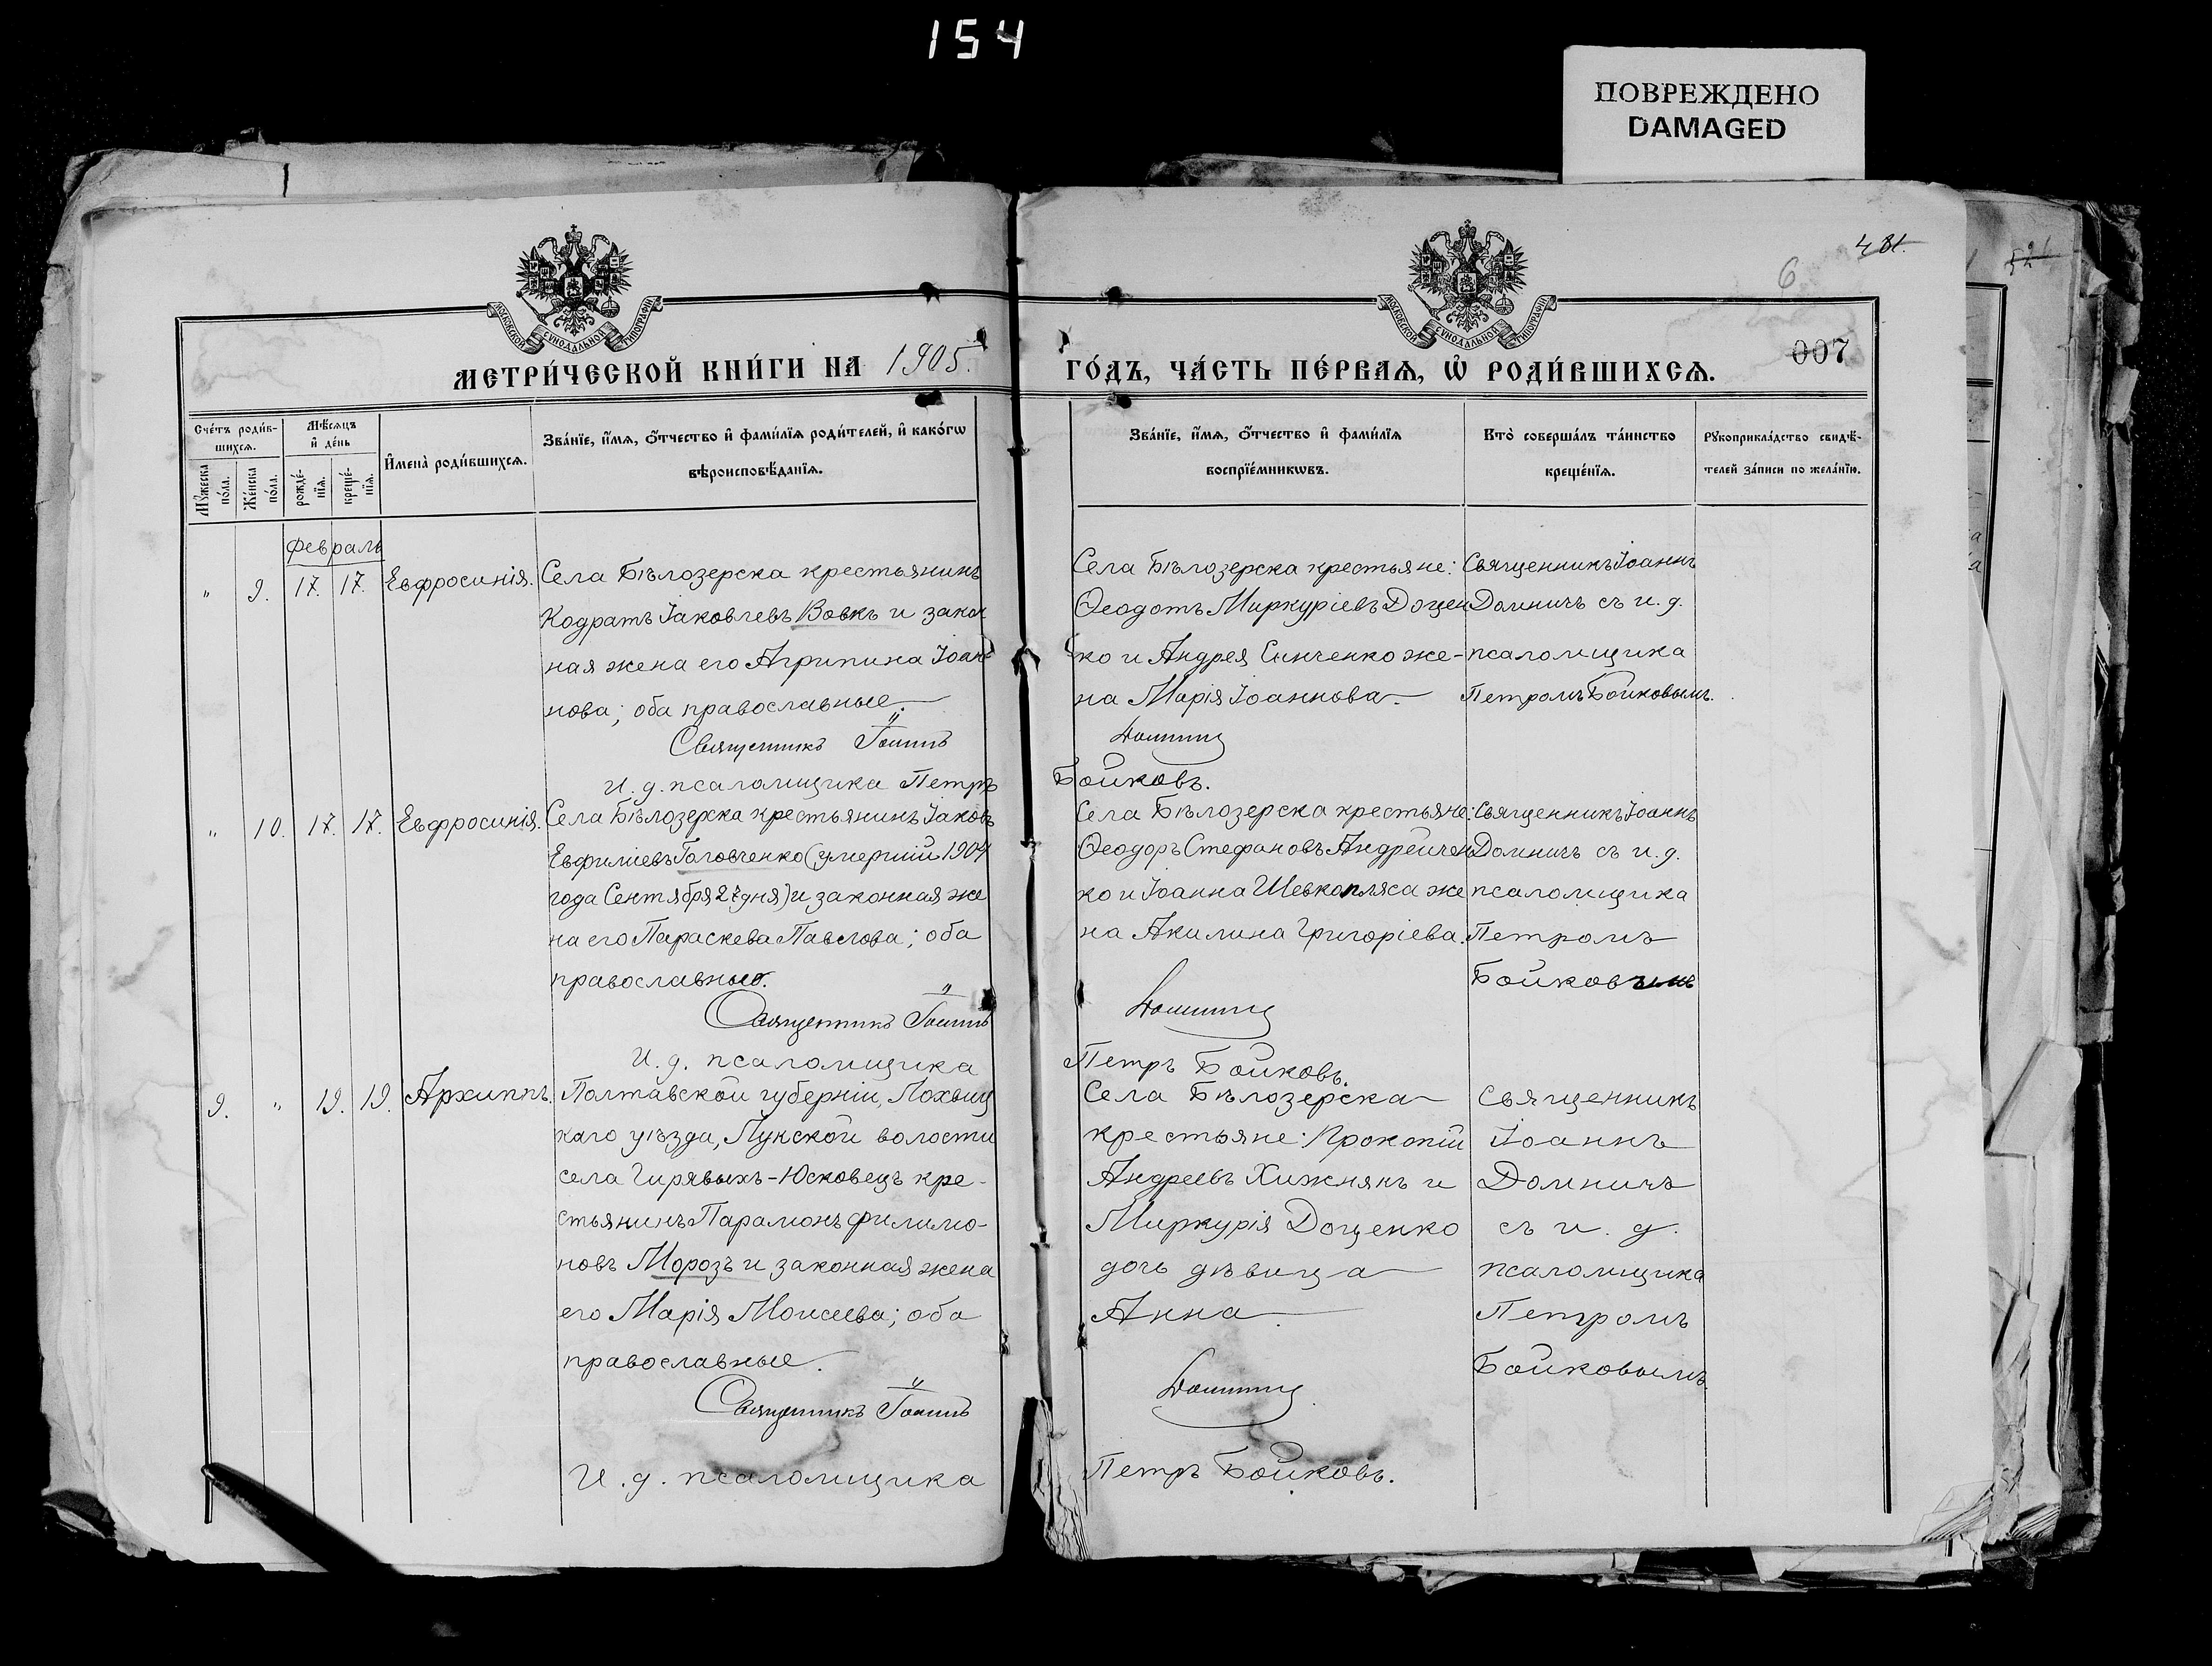 154
ПОВРЕЖДЕНО
DAMAGED
МОСКОВСКОЙ СУНОДАЛЬНОЙ ТИПОГРАФІИ
МОСКОВСКОЙ СУНОДАЛЬНОЙ ТИПОГРАФІИ
6
481.
007
МЕТРИ́ЧЕСКОЙ КНИ́ГИ НА 1905.
ГО́ДЪ, ЧА́СТЬ ПЕ́РВАѦ, Ѡ҆ РОДИ́ВШИХСѦ.
Сче́тъ роди́в-
шихсѧ.
Мѣ́сѧцъ
и҆ де́нь
Мꙋ́жеска по́ла.
Же́нска по́ла.
рожде́-
нїѧ.
креще́-
нїѧ.
И҆мена̀ роди́вшихсѧ.
Зва́нїе, и҆́мѧ, ѻ҆́тчество и҆ фами́лїѧ роди́телей, и҆ како́гѡ
вѣроисповѣ́данїѧ.
Зва́нїе, и҆́мѧ, ѻ҆́тчество и҆ фами́лїѧ
воспрїе́мникѡвъ.
Кто̀ соверша́лъ та́инство
креще́нїѧ.
Рꙋкоприкла́дство свидѣ́-
телей за́писи по жела́нїю.
Февраль
" 9. 17. 17. Евфросинія.
Села Бѣлозерска крестьянинъ
Кодратъ Іаковлевъ Вовкъ и закон
ная жена его Агрипина Іоан-
нова; оба православные.
Священникъ Іоаннъ
И. д. псаломщика Петръ
Села Бѣлозерска крестьяне:
Ѳеодотъ Миркуріевъ Доцен
ко и Андрея Синченко же-
на Марія Іоаннова.
Домничъ
Бойковъ.
Священникъ Іоаннъ
Домничъ съ и. д.
псаломщика
Петромъ Бойковымъ.
" 10. 17. 17. Евфросинія.
Села Бѣлозерска крестьянинъ Іаковъ
Евфиміевъ Головченко (умершій 1904
года Сентября 27 дня) и законная же
на его Параскева Павлова; оба
православные.
Священникъ Іоаннъ
И. д. псаломщика
Села Бѣлозерска крестьяне:
Ѳеодоръ Стефановъ Андрейчен
ко и Іоанна Шевкопляса же
на Акилина Григоріева.
Домничъ
Петръ Бойковъ.
Священникъ Іоаннъ
Домничъ съ и. д.
псаломщика
Петромъ
Бойковымъ
9. " 19. 19. Архиппъ.
Полтавской губерніи, Лохвиц
каго уѣзда, Лукской волости
села Гирявыхъ-Юсковецъ кре-
стьянинъ Парамонъ Филимо-
новъ Морозъ и законная жена
его Марія Моисеева; оба
православные.
Священникъ Іоаннъ
И. д. псаломщика
Села Бѣлозерска
крестьяне: Прокопій
Андреевъ Хижнякъ и
Миркурія Доценко
дочь дѣвица
Анна.
Домничъ
Петръ Бойковъ.
Священникъ
Іоаннъ
Домничъ
съ и. д.
псаломщика
Петромъ
Бойковымъ.